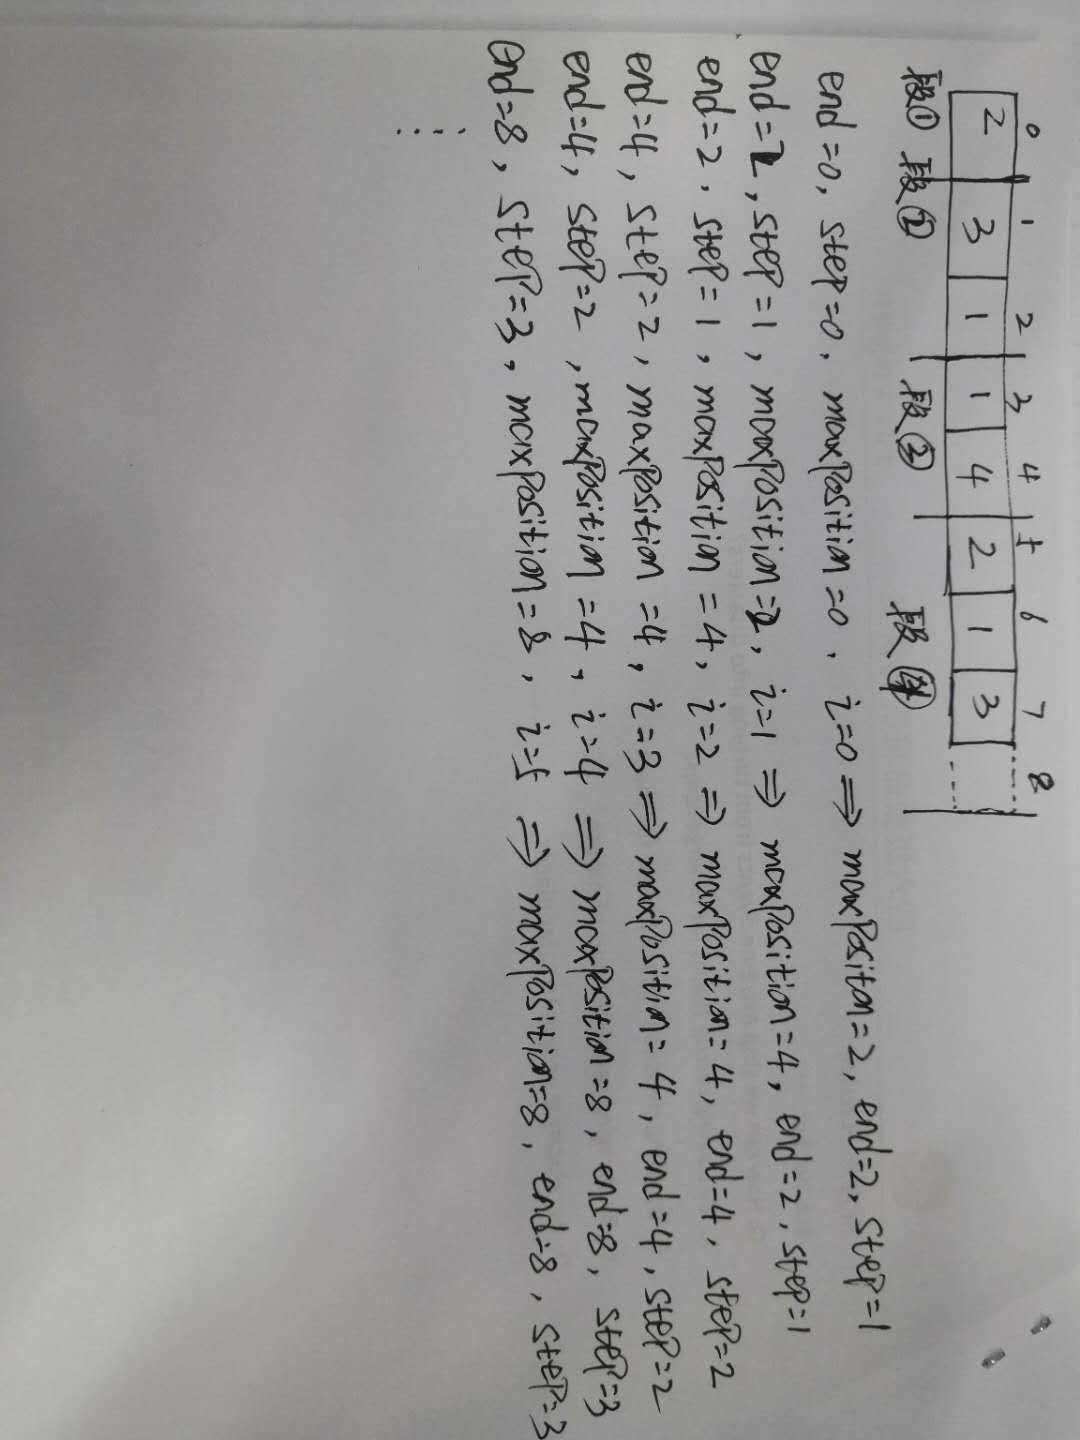 0 1 2 3 4 5 6 7 8
2 3 1 1 4 2 1 3
段① 段② 段③ 段④
end=0, step=0, maxPosition=0, i=0 ⇒ maxPositon=2, end=2, step=1
end=2, step=1, maxPosition=2, i=1 ⇒ maxPosition=4, end=2, step=1
end=2, step=1, maxPosition=4, i=2 ⇒ maxPosition=4, end=4, step=2
end=4, step=2, maxPosition=4, i=3 ⇒ maxPosition=4, end=4, step=2
end=4, step=2, maxPosition=4, i=4 ⇒ maxPosition=8, end=8, step=3
end=8, step=3, maxPosition=8, i=5 ⇒ maxPosition=8, end=8, step=3